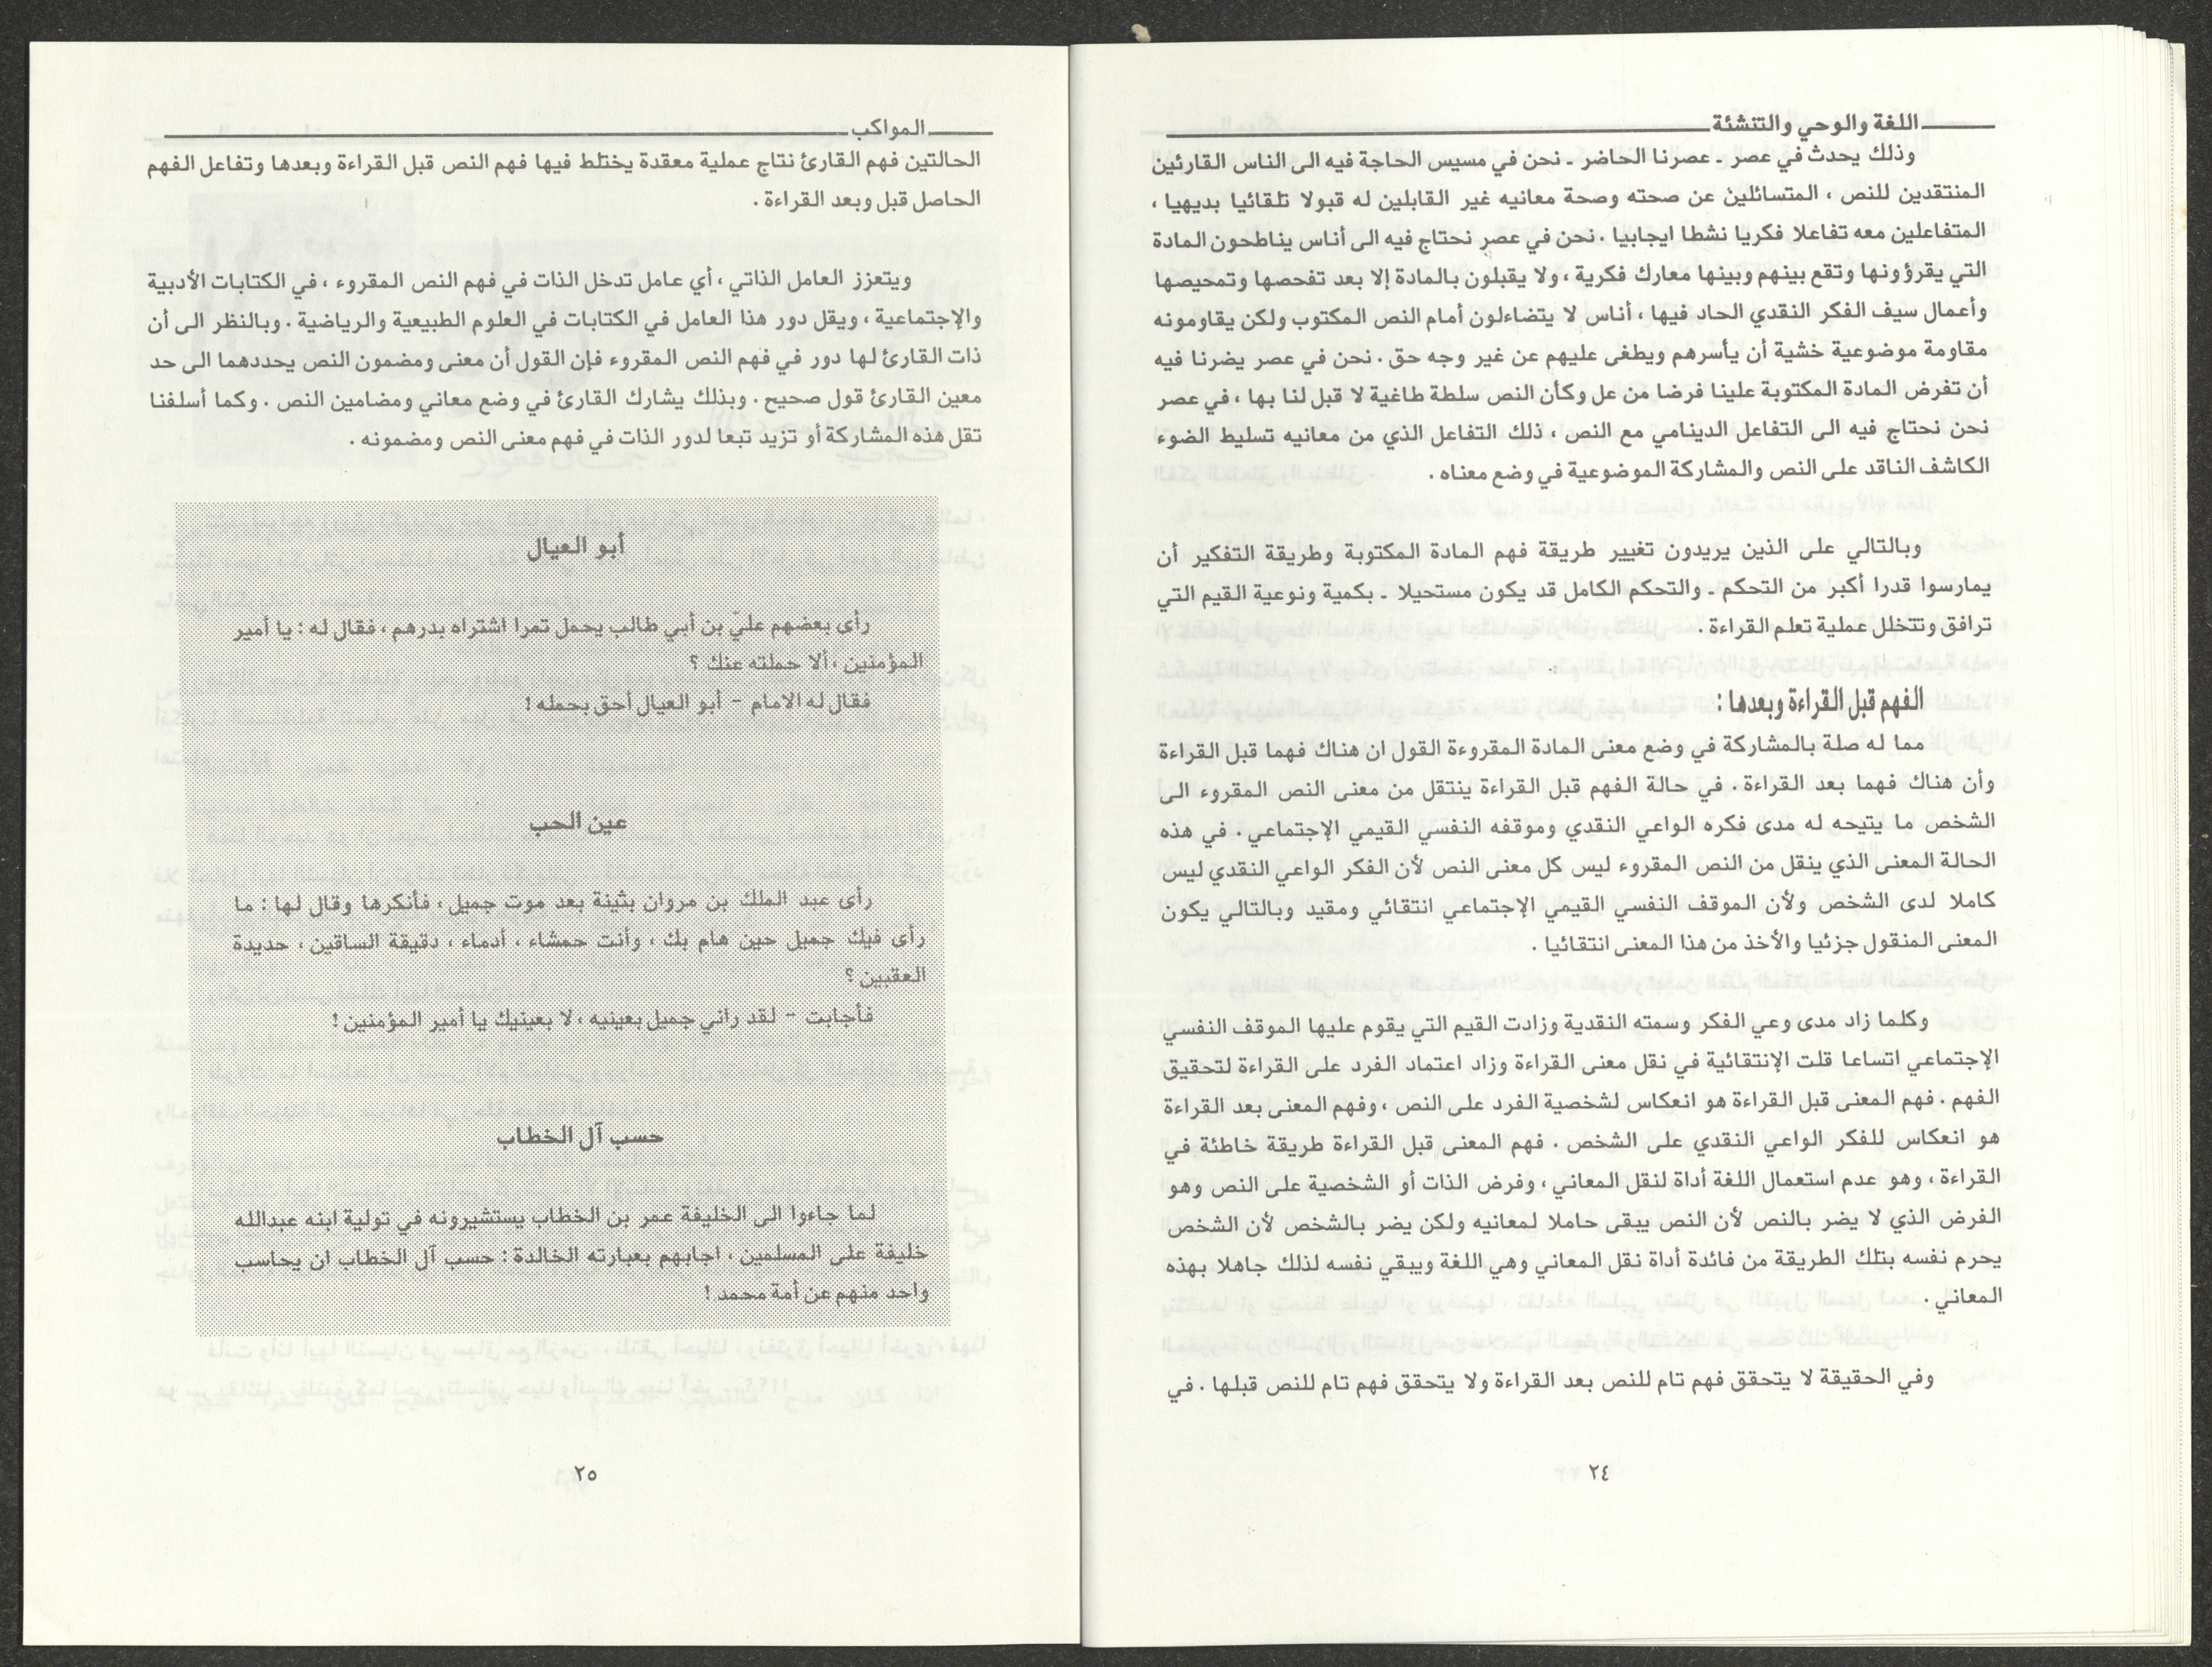 اللغة والوحي والتنشئة
وذلك يحدث في عصر ـ عصرنا الحاضر ـ نحن في مسيس الحاجة فيه الى الناس القارئين
المنتقدين للنص ، المتسائلين عن صحته وصحة معانيه غير القابلين له قبولا تلقائيا بديهيا ،
المتفاعلين معه تفاعلا فكريا نشطا ايجابيا . نحن في عصر نحتاج فيه الى أناس يناطحون المادة
التي يقرؤونها وتقع بينهم وبينها معارك فكرية ، ولا يقبلون بالمادة إلا بعد تفحصها وتمحيصها
وأعمال سيف الفكر النقدي الحاد فيها ، أناس لا يتضاءلون أمام النص المكتوب ولكن يقاومونه
مقاومة موضوعية خشية أن يأسرهم ويطغى عليهم عن غير وجه حق . نحن في عصر يضرنا فيه
أن تفرض المادة المكتوبة علينا فرضا من عل وكأن النص سلطة طاغية لا قبل لنا بها ، في عصر
نحن نحتاج فيه الى التفاعل الدينامي مع النص ، ذلك التفاعل الذي من معانيه تسليط الضوء
الكاشف الناقد على النص والمشاركة الموضوعية في وضع معناه .
وبالتالي على الذين يريدون تغيير طريقة فهم المادة المكتوبة وطريقة التفكير أن
يمارسوا قدرا أكبر من التحكم ـ والتحكم الكامل قد يكون مستحيلا ـ بكمية ونوعية القيم التي
ترافق وتتخلل عملية تعلم القراءة .
الفهم قبل القراءة وبعدها :
مما له صلة بالمشاركة في وضع معنى المادة المقروءة القول ان هناك فهما قبل القراءة
وأن هناك فهما بعد القراءة . في حالة الفهم قبل القراءة ينتقل من معنى النص المقروء الى
الشخص ما يتيحه له مدى فكره الواعي النقدي وموقفه النفسي القيمي الإجتماعي . في هذه
الحالة المعنى الذي ينقل من النص المقروء ليس كل معنى النص لأن الفكر الواعي النقدي ليس
كاملا لدى الشخص ولأن الموقف النفسي القيمي الإجتماعي انتقائي ومقيد وبالتالي يكون
المعنى المنقول جزئيا والأخذ من هذا المعنى انتقائيا .
وكلما زاد مدى وعي الفكر وسمته النقدية وزادت القيم التي يقوم عليها الموقف النفسي
الإجتماعي اتساعا قلت الإنتقائية في نقل معنى القراءة وزاد اعتماد الفرد على القراءة لتحقيق
الفهم . فهم المعنى قبل القراءة هو انعكاس لشخصية الفرد على النص ، وفهم المعنى بعد القراءة
هو انعكاس للفكر الواعي النقدي على الشخص . فهم المعنى قبل القراءة طريقة خاطئة في
القراءة ، وهو عدم استعمال اللغة أداة لنقل المعاني ، وفرض الذات أو الشخصية على النص وهو
الفرض الذي لا يضر بالنص لأن النص يبقى حاملا لمعانيه ولكن يضر بالشخص لأن الشخص
يحرم نفسه بتلك الطريقة من فائدة أداة نقل المعاني وهي اللغة ويبقي نفسه لذلك جاهلا بهذه
المعاني .
وفي الحقيقة لا يتحقق فهم تام للنص بعد القراءة ولا يتحقق فهم تام للنص قبلها . في
٢٤
المواكب
الحالتين فهم القارئ نتاج عملية معقدة يختلط فيها فهم النص قبل القراءة وبعدها وتفاعل الفهم
الحاصل قبل وبعد القراءة .
ويتعزز العامل الذاتي ، أي عامل تدخل الذات في فهم النص المقروء ، في الكتابات الأدبية
والإجتماعية ، ويقل دور هذا العامل في الكتابات في العلوم الطبيعية والرياضية . وبالنظر الى أن
ذات القارئ لها دور في فهم النص المقروء فإن القول أن معنى ومضمون النص يحددهما الى حد
معين القارئ قول صحيح . وبذلك يشارك القارئ في وضع معاني ومضامين النص . وكما أسلفنا
تقل هذه المشاركة أو تزيد تبعا لدور الذات في فهم معنى النص ومضمونه .
أبو العيال
رأى بعضهم عليّ بن أبي طالب يحمل تمرا اشتراه بدرهم ، فقال له : يا أمير
المؤمنين ، ألا حملته عنك ؟
فقال له الامام – أبو العيال أحق بحمله !
عين الحب
رأى عبد الملك بن مروان بثينة بعد موت جميل ، فأنكرها وقال لها : ما
رأى فيك جميل حين هام بك ، وأنت حمشاء ، أدماء ، دقيقة الساقين ، حديدة
العقبين ؟
فأجابت – لقد راني جميل بعينيه ، لا بعينيك يا أمير المؤمنين !
حسب آل الخطاب
لما جاءوا الى الخليفة عمر بن الخطاب يستشيرونه في تولية ابنه عبدالله
خليفة على المسلمين ، اجابهم بعبارته الخالدة : حسب آل الخطاب ان يحاسب
واحد منهم عن أمة محمد !
٢٥